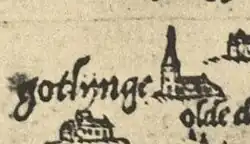 gotlynge
olde